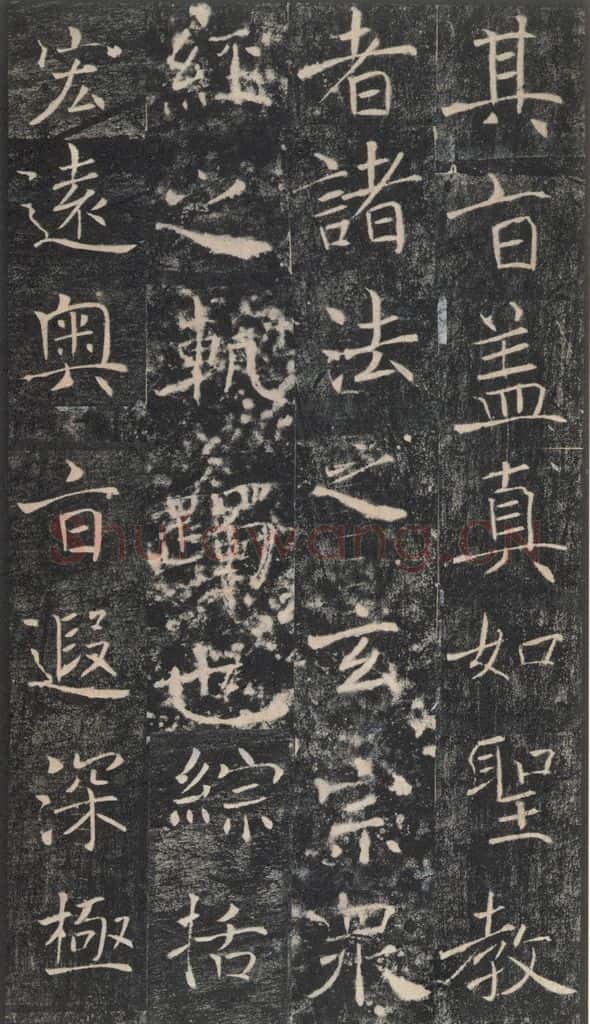 其㫖盖真如聖教
者諸法之玄宗眾
經之軌躅也綜括
宏遠奥㫖遐深極
Shufawang.CN